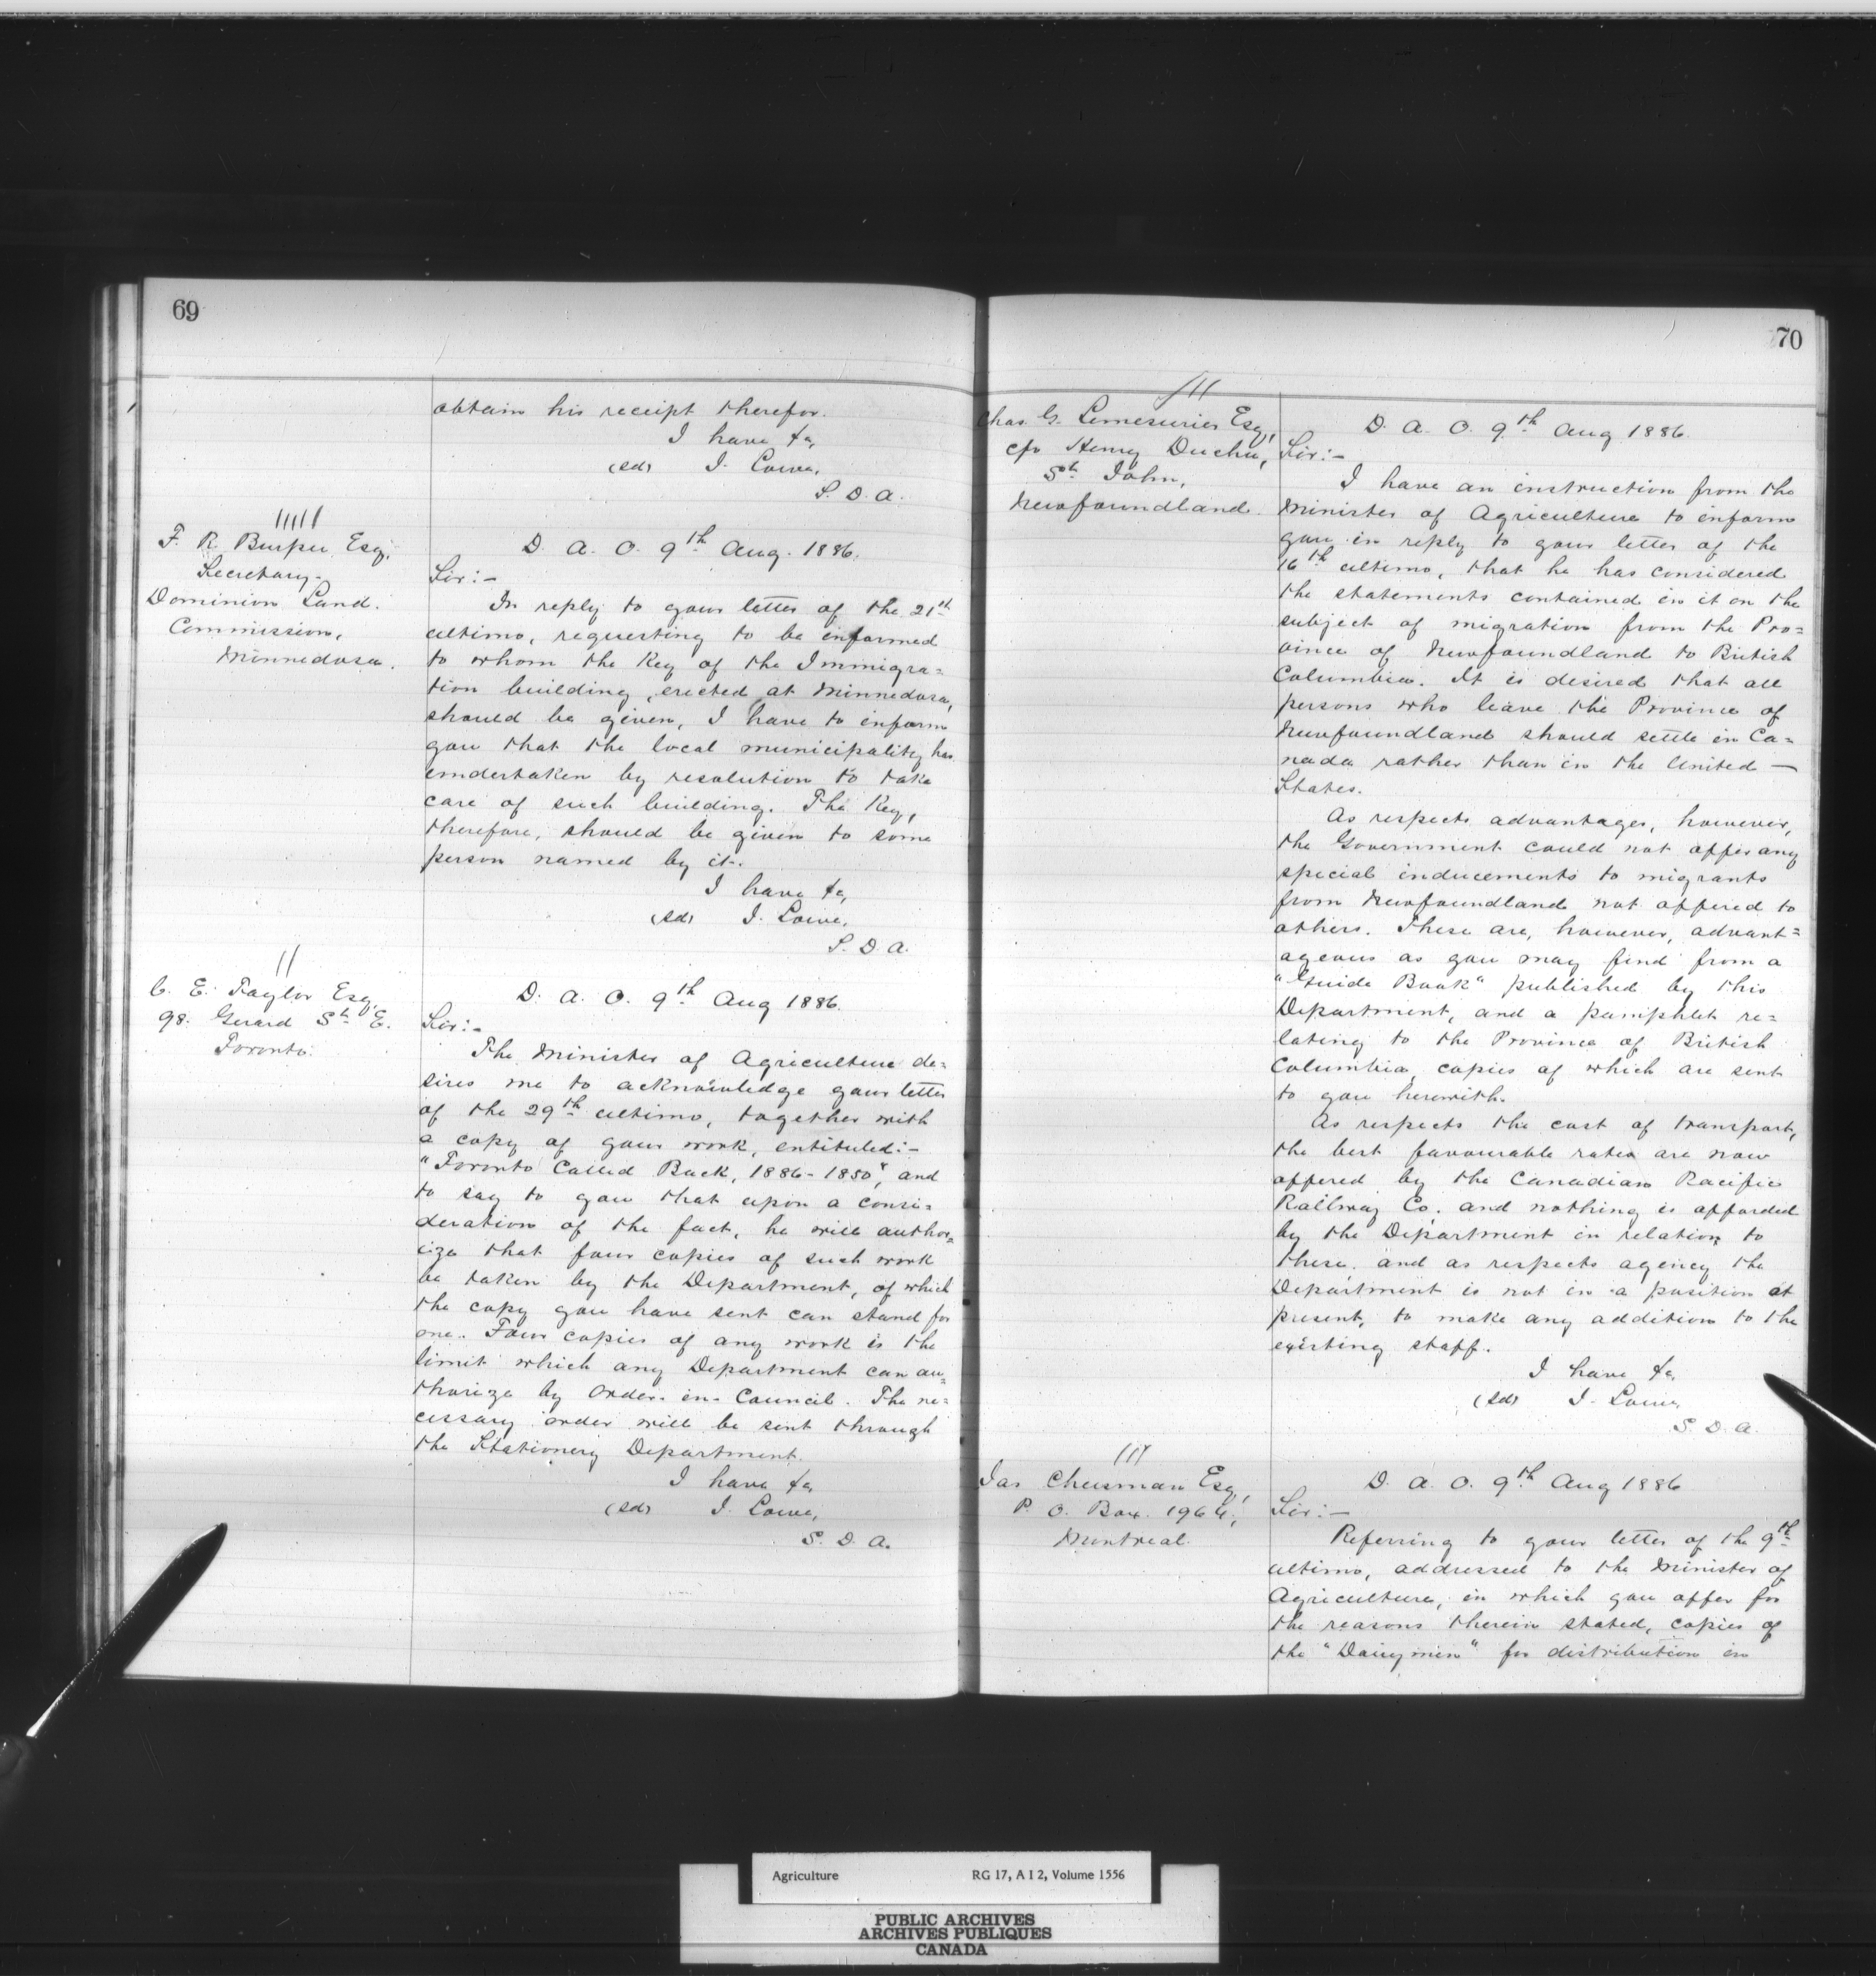 69
obtain his receipt therefor.
I have &c,
(sd) J. Lowe,
S. D. A.
F. R. Burpee Esq,
Secretary-
Dominion Land.
Commission,
Minnedosa.
D. A. O. 9th Aug. 1886.
Sir:-
In reply to your letter of the 21st
ultimo, requesting to be informed
to whom the Key of the Immigra=
tion building, erected at Minnedosa,
should be given, I have to inform
you that the local municipality has
undertaken by resolution to take
care of such building. The Key,
therefore, should be given to some
person named by it.
I have &c,
(sd) J. Lowe,
S. D. A.
C. E. Taylor Esq,
98. Gerard St. E.
Toronto.
D. A. O. 9th Aug 1886.
Sir:-
The Minister of Agriculture de=
sires me to acknowledge your letter
of the 29th ultimo, together with
a copy of your work, entituled:-
"Toronto Called Back, 1886-1850", and
to say to you that upon a consi=
deration of the fact, he will author=
ize that four copies of such work
be taken by the Department, of which
the copy you have sent can stand for
one. Four copies of any work is the
limit which any Department can au=
thorize by Order-in-Council. The ne=
cessary order will be sent through
the Stationery Department.
I have &c,
(sd) J. Lowe,
S. D. A.
70
Chas. G. Lemesurier Esq,
c/o Henry Duchu,
St. John,
Newfoundland.
D. A. O. 9th Aug 1886.
Sir:-
I have an instruction from the
Minister of Agriculture to inform
you in reply to your letter of the
16th ultimo, that he has considered
the statements contained in it on the
subject of migration from the Pro=
vince of Newfoundland to British
Columbia. It is desired that all
persons who leave the Province of
Newfoundland should settle in Ca=
nada rather than in the United —
States.
As respects advantages, however,
the Government could not offer any
special inducements to migrants
from Newfoundland not offered to
others. These are, however, advant=
ageous as you may find from a
"Guide Book" published by this
Department, and a pamphlet re=
lating to the Province of British
Columbia, copies of which are sent
to you herewith.
As respects the cost of transport,
the best favourable rates are now
offered by the Canadian Pacific
Railway Co. and nothing is afforded
by the Department in relation to
these. and as respects agency the
Department is not in a position at
present, to make any addition to the
existing staff.
I have &c,
(sd) J. Lowe,
S. D. A.
Jas Cheesman Esq,
P. O. Box. 1964,
Montreal.
D. A. O. 9th Aug 1886
Sir:-
Referring to your letter of the 9th
ultimo, addressed to the Minister of
Agriculture, in which you offer for
the reasons therein stated, copies of
the "Dairymen" for distribution in
Agriculture RG 17, A I 2, Volume 1556
PUBLIC ARCHIVES
ARCHIVES PUBLIQUES
CANADA